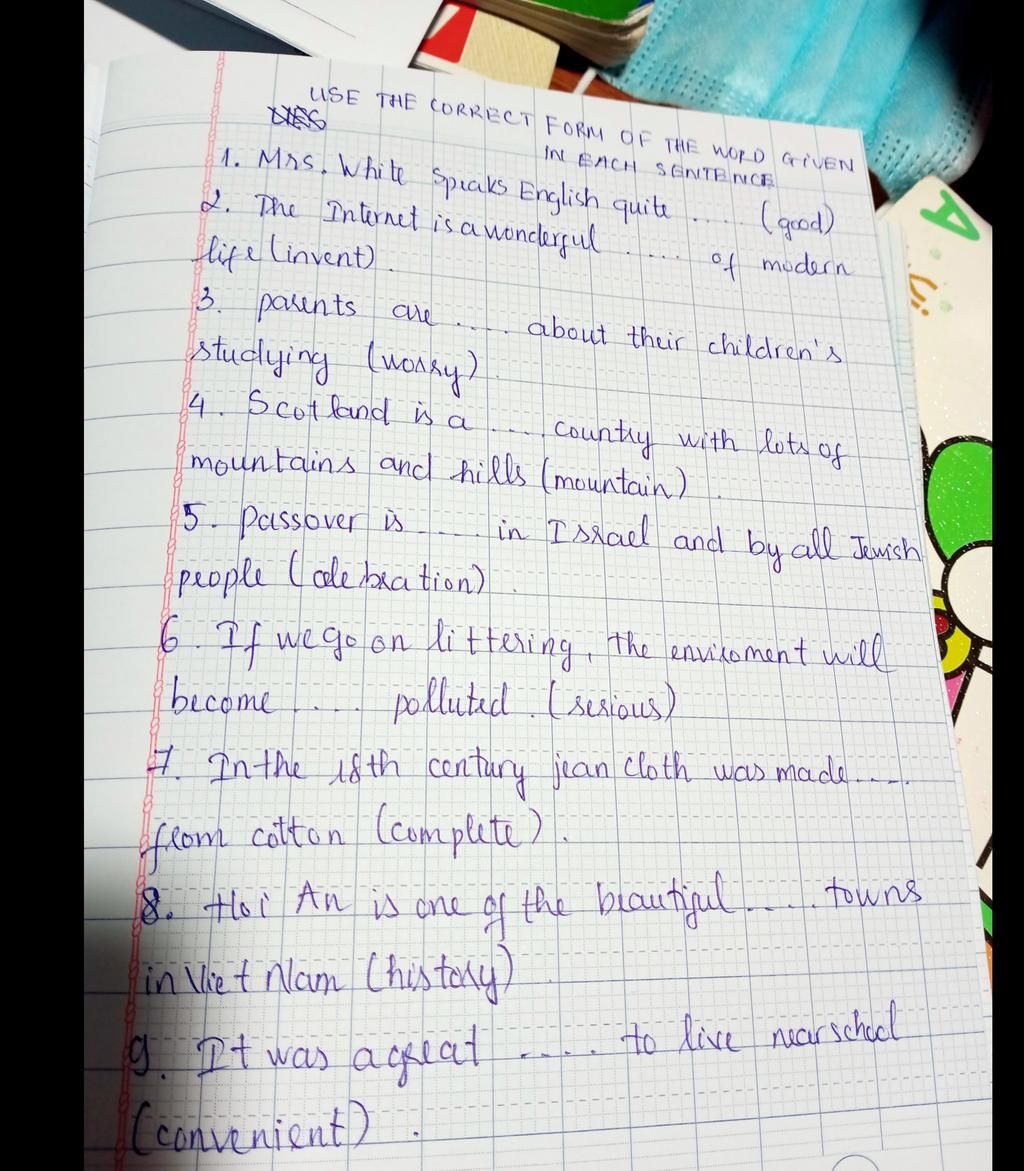 USE THE CORRECT FORM OF THE WORD GIVEN
IN EACH SENTENCE
1. Mrs. White speaks English quite .... (good)
2. The Internet is a wonderful ..... of modern
life (invent).
3. parents are .... about their children's
studying (worry)
4. Scotland is a .... country with lots of
mountains and hills (mountain).
5. Passover is .... in Israel and by all Jewish
people (celebration).
6. If we go on littering, the enviroment will
become .... polluted. (serious)
7. In the 18th century jean cloth was made ....
from cotton (complete).
8. Hoi An is one of the beautiful .... towns
in Viet Nam (history).
9. It was a great .... to live near school
(convenient).
A